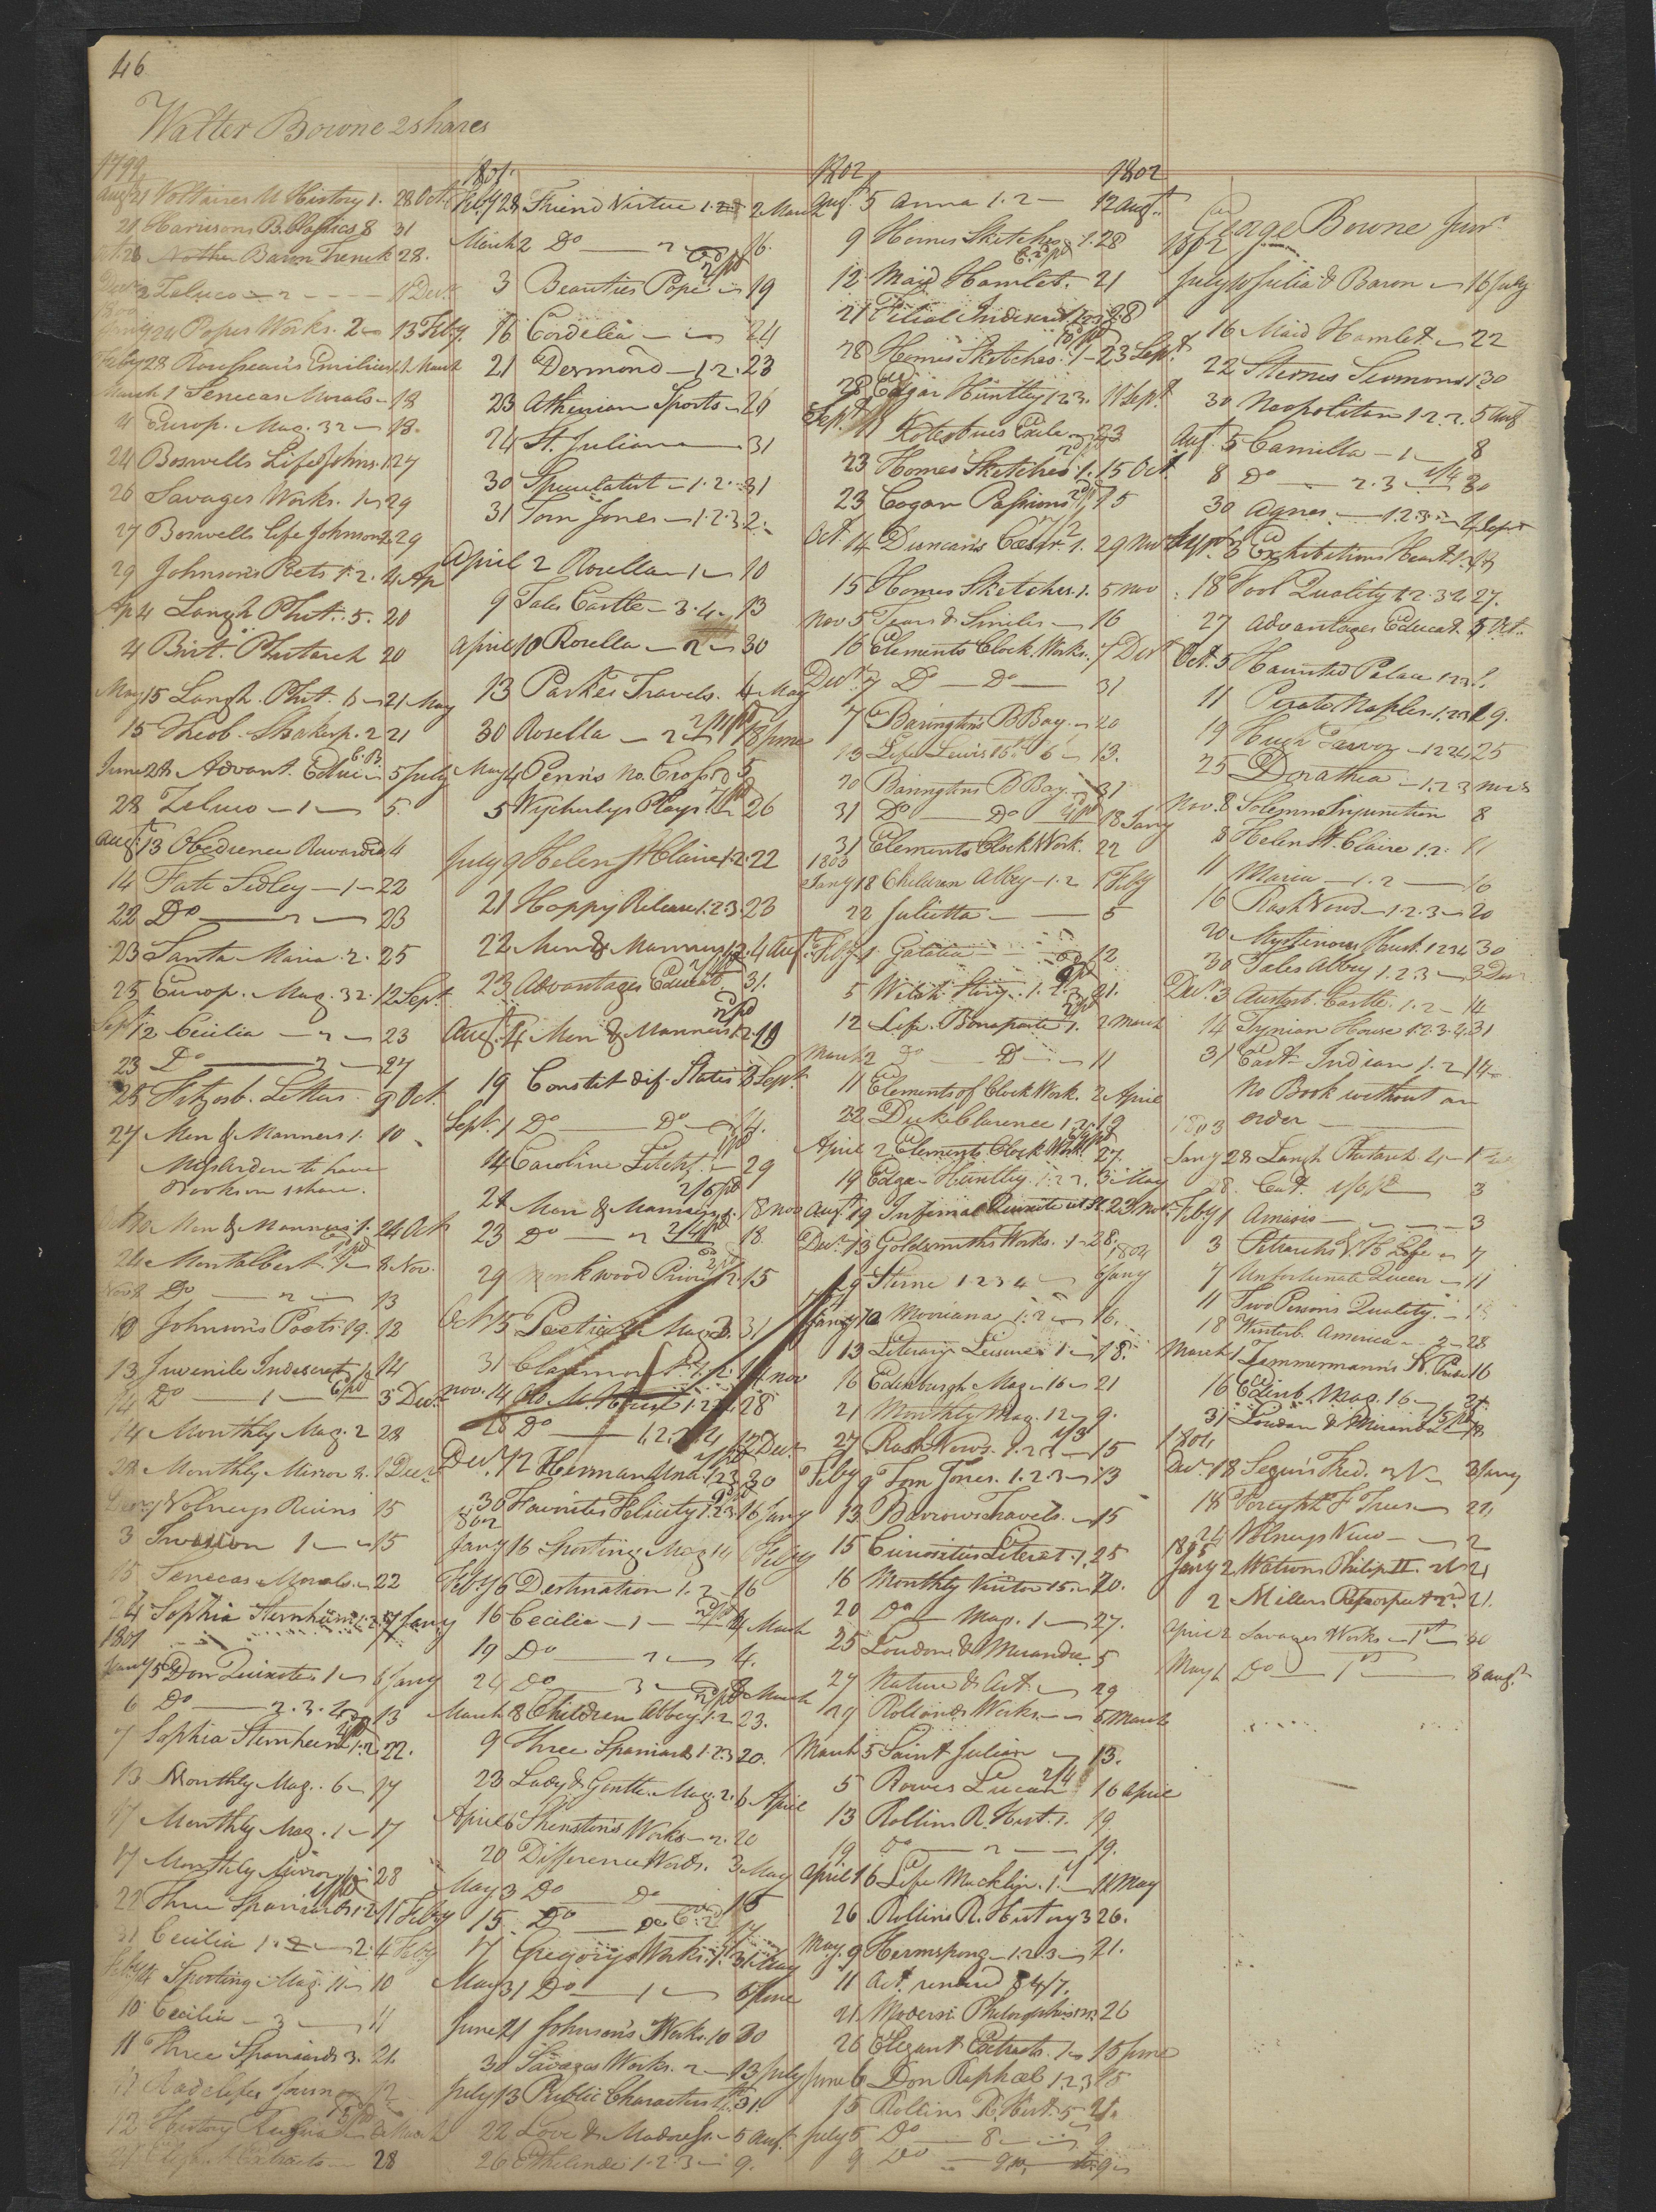 46
Walter Bowne 2 shares
1799
Augt 21 Voltaires U History 1. 28 Oct
21 Harrisons B. Classics 8 31
Baron Trenck 28.
Decr 2 Zeluco 2 Decr
1800
Jany 24 Popes Works. 2 13 Feby.
Feby 28 Rousseau's Emilius March
March 1 Senecas Morals 18
Europ. Mag. 32 18.
24 Boswells Life Johns. 1 27
26 Savages Works. 1 29
27 Boswells life Johnson 2 29
29 Johnsons Poets 1.2. 4 Ap
Ap 4 Langh. Plut. 5. 20
4 Brit. Plutarch 20
May 15 Langh. Plut. 6 21 May
15 Theob. Shaksp. 2 21
June 28 Advant. Educ 5 July
28 Zeluco 1 5.
Augt 13 Obedience Rewarded 4
14 Fate Sedley 1 22
22 Do 2 23
23 Santa Maria 2. 25
25 Europ. Mag. 32. 12 Sept.
Sept 12 Cecilia 2 23
23 Do 3 27
25 Fitzosb. Letters 9 Oct.
27 Men & Manners 1. 10
to have
Books on 1 share.
Men & Manners 1. 24 Oct
24 Montalbert 1 8 Nov.
Nov 8 Do 2 13
10 Johnson's Poets 19. 13
13 Juvenile Indiscret. 14
14 Do 1 6/pd 3 Decr
14 Monthly Mag. 2 28
28 Monthly Mirror 2. 1 Decr
Volneys Ruins 15
3 1 15
15 Senecas Morals 22
24 Sophia Sternheim 1.2. 7 Jany
1801
Jany 5 Don Quixote 1 6 Jany
6 Do 2.3.4 13
7 Sophia Sternheim 1.2 22.
13 Monthly Mag. 6 17
17 Monthly Mag. 1 17
17 Monthly Mirror 28
22 Three Spaniards 1.2 11 Feby
31 Cecilia 1.2 4 Feby
Feby 4 Sporting Mag. 11 10
10 Cecilia 3 11
11 Three Spaniards 3. 21.
Radcliffes Journey 12
12 History March
Extracts 28
1801.
Feby 28 Friend Virtue 1.2 2 March
March 2 Do 2 16.
3 Beauties Pope 19
16 Cordelia 24
21 Desmond 1.2. 23
23 Athenian Sports 26
24 St. Julian 31
30 Speculatist 1.2. 31
31 Tom Jones 1.2.3. 2.
April 2 Rosella 1 10
9 Tales Castle 3.4. 13
April 10 Rosella 2 30
13 Parkes Travels. 4 May
30 Rosella 2 18 June
May 4 Penns No Cross 5
5 Wycherleys Plays 26
July 9 Helen St Claire 1.2. 22
21 Happy Release 1.2.3. 23
22 Men & Manners 1.2. 4 Augt
23 Advantages Educat. 31.
Augt. 4 Men & Manners 1.2. 19
19 Constit. dif. States 3 Sept.
Sept. 1 Do Do 14.
14 Caroline Litchf. 29
24 Men & Manners 1. 8 Nov
23 Do 2 18.
29 Monkwood Priory 1.2. 15
Oct. 15 Poetical Mag. 2. 31
31 Claremont 1.2. 14 Nov
Nov. 14 28
28 Do 1.2.3.4 12 Decr
Decr. 12 Herman Una. 1.2.3 30
30 Favorites Felicity 1.2.3. 16 Jany
1802
Jany 16 Sporting Mag 14 6 Feby
Feby 6 Destination 1.2 16
16 Cecilia 1 4 March
19 Do 2 4.
24 Do 3 8 March
March 8 Children Abbey 1.2. 23.
9 Three Spaniards 1.2.3 20.
23 Lady & Gentle. Mag. 2. 6 April
April 6 Shenstons Works 2. 20
20 Difference Words. 3 May
May 3 Do Do 15
15 Do Do 17
17 Gregorys Works. 1. 31 May
May 31 Do 1 5 June
June 21 Johnson's Works. 10 30
30 Savages Works. 2 13 July
July 13 Public Characters 31.
22 Love & Madness. 5 Augt.
26 Ethelinde 1.2.3 9.
1802
Augt. 5 Anna 1.2 12 Augt.
9 Homes Sketches 1. 28
12 Maid Hamlet. 21
21 Filial Indiscret. 1.2.3 28
28 Homes Sketches. 1 23 Sept.
28 Edgar Huntley 1.2.3. 11 Sept.
Sept. 11 Kotzebues Exile 23
23 Homes Sketches 1. 15 Oct.
23 Cogan Passions 15
Oct. 14 Duncans Cæsar. 1. 29 Nov
15 Homes Sketches. 1. 5 Nov
Nov 5 Tears & Smiles 16
16 Elements Clock Works. 7 Decr
Decr. 7 Do Do 31
7 Barington's B Bay. 20
13 Life Lewis 15th 6 13.
20 Baringtons B Bay 31
31 Do Do 18 Jany
31 Elements Clock Work. 22
1803
Jany 18 Children Abbey 1.2 1 Feby
22 Julietta 5
Feby 1 Galatea 12
5 Welsh Story. 1.2.3 21.
12 Life Bonaparte 1. 2 March
March 2 Do Do 11
11 Elements of Clock Work. 2 April
22 Duke Clarence 1.2. 19
April 2 Elements Clock Work 27.
19 Edgar Huntley 1.2.3. 3 May
Augt. 19 Infernal Quixote 23 Nov
Decr. 13 Goldsmiths Works. 1 28.
1804
29 Sterne 1.2.3.4 6 Jany
Jany 10 Mooriana 1.2 16.
13 Literary Leisure 1 18.
16 Edinburgh Mag. 16 21
21 Monthly Mag. 12 9.
27 Rash Vows. 1.2.3 15
Feby 9 Tom Jones. 1.2.3 13
13 Barrows Travels. 15
15 Curiosities Literat. 1. 25
16 Monthly Visitor 15. 20.
20 Do Mag. 1 27.
25 Loudon & Miranda. 5
27 Nature & Art 29
29 Rollands Works 5 March
March 5 Saint Julian 13.
5 Rowes Lucan 16 April
13 Rollins R. Hist. 1. 19.
19 Do 2 19.
April 16 Life Macklin. 1. 11 May
26 Rollins R. History 3 26.
May. 9 Hermsprong 1.2.3 21.
11 Act. renewd 8 4/7.
21 Modern Philosophers 26
26 Elegant Extracts. 1 15 June
June 6 Don Raphael 1.2.3 15
15 Rollins R. Hist. 5 21.
July 5 Do 8 9
9 Do 9
1802
George Bowne Junr
1802
July 10 Julia & Baron 16 July
16 Maid Hamlet 22
22 Sternes Sermons 1 30
30 Neopolitan 1.2.3. 5 Augt
Augt. 5 Camilla 1 8
8 Do 2.3 30
30 Agnes 1.2.3 4 Sept
Sept. Exhibitions Heart 1.
18 Fool Quality 1.2.3.4 27.
27 Advantages Educat. 5 Oct.
Oct. 5 Haunted Palace 1.2.3
11 Pirate Naples. 1.2.3 19.
19 Hugh Trevor 1.2.3.4 25
25 Dorathea 1.2.3 Nov 8
Nov. 8 Solemn Injunction 8
8 Helen St. Claire 1.2. 11
11 Maria 1.2 16
16 Rash Vows 1.2.3 20
20 Mysterious Husb. 1.2.3.4 30
30 Tales Abbey 1.2.3 3 Decr
Decr. 3 Austenb. Castle. 1.2 14
14 Tynian House 1.2.3.4. 31
31 East Indian 1.2 14
No Book without an
order
1803
Jany 28 Langh Plutarch. 4 1
28. Cut. 3
Feby 1 Amasis 3
3 Petrarchs V. H Life 7
7 Unfortunate Queen 11
11 Two Persons Quality.
18 Winterb. America 2 28
March 1 Zemmermann's 16
16 Edinb. Mag. 16 31.
31 Loudon & Miranda 18
1804
Decr. 18 Segurs Fred. 3 Jany
18 Forsyth F Trees
24 Volneys View 2
1805
Jany 2 Watsons Philip II. 21
2 Millers Retrospect 2nd 21.
April 2 Savages Works 1st 30
May 1 Do 1st 8 Augt.